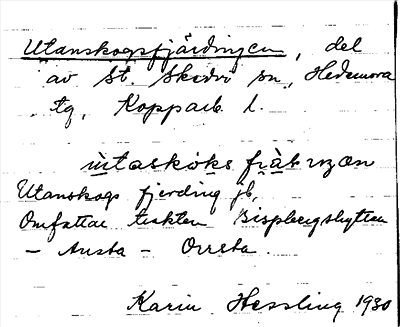 Utanskogsfjärdingen, del
av St. Skedvi sn, Hedemora
tg, Kopparb l.
Utanskogs fjerding jb
Omfattar trakten Bispbergshyttan
– Ansta – Orrsta.
Karin Hessling 1930